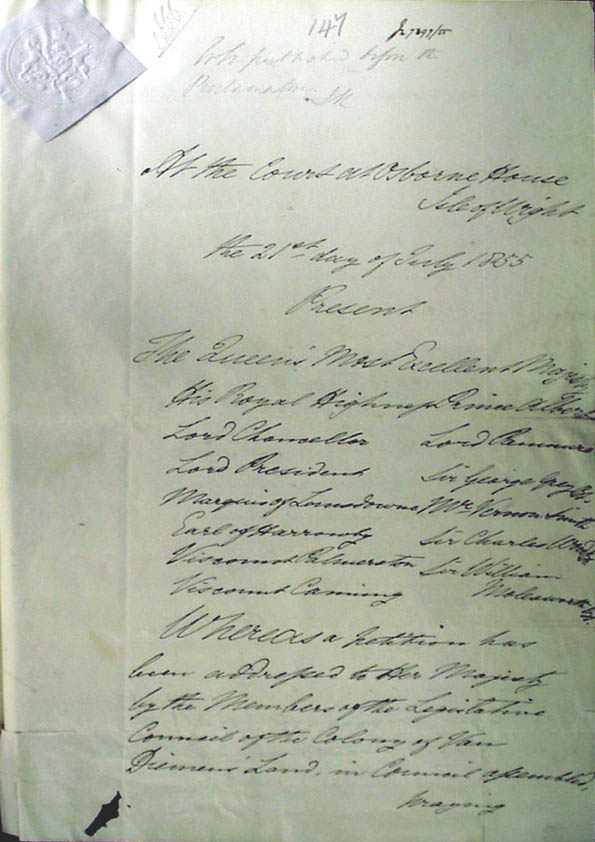 1666
147
To be published before the
Proclamation
At the Court at Osborne House
Isle of Wight
the 21st day of July 1855
Present
The Queen's Most Excellent Majesty
His Royal Highness Prince Albert
Lord Chancellor Lord Panmure
Lord President Sir George Grey Bt.
Marquis of Lansdowne Mr. Vernon Smith
Earl of Harrowby Sir Charles Wood Bt.
Viscount Palmerston Sir William
Viscount Canning Molesworth Bt.
Whereas a Petition has
been addressed to Her Majesty
by the Members of the Legislative
Council of the Colony of Van
Diemen's Land, in Council assembled,
praying